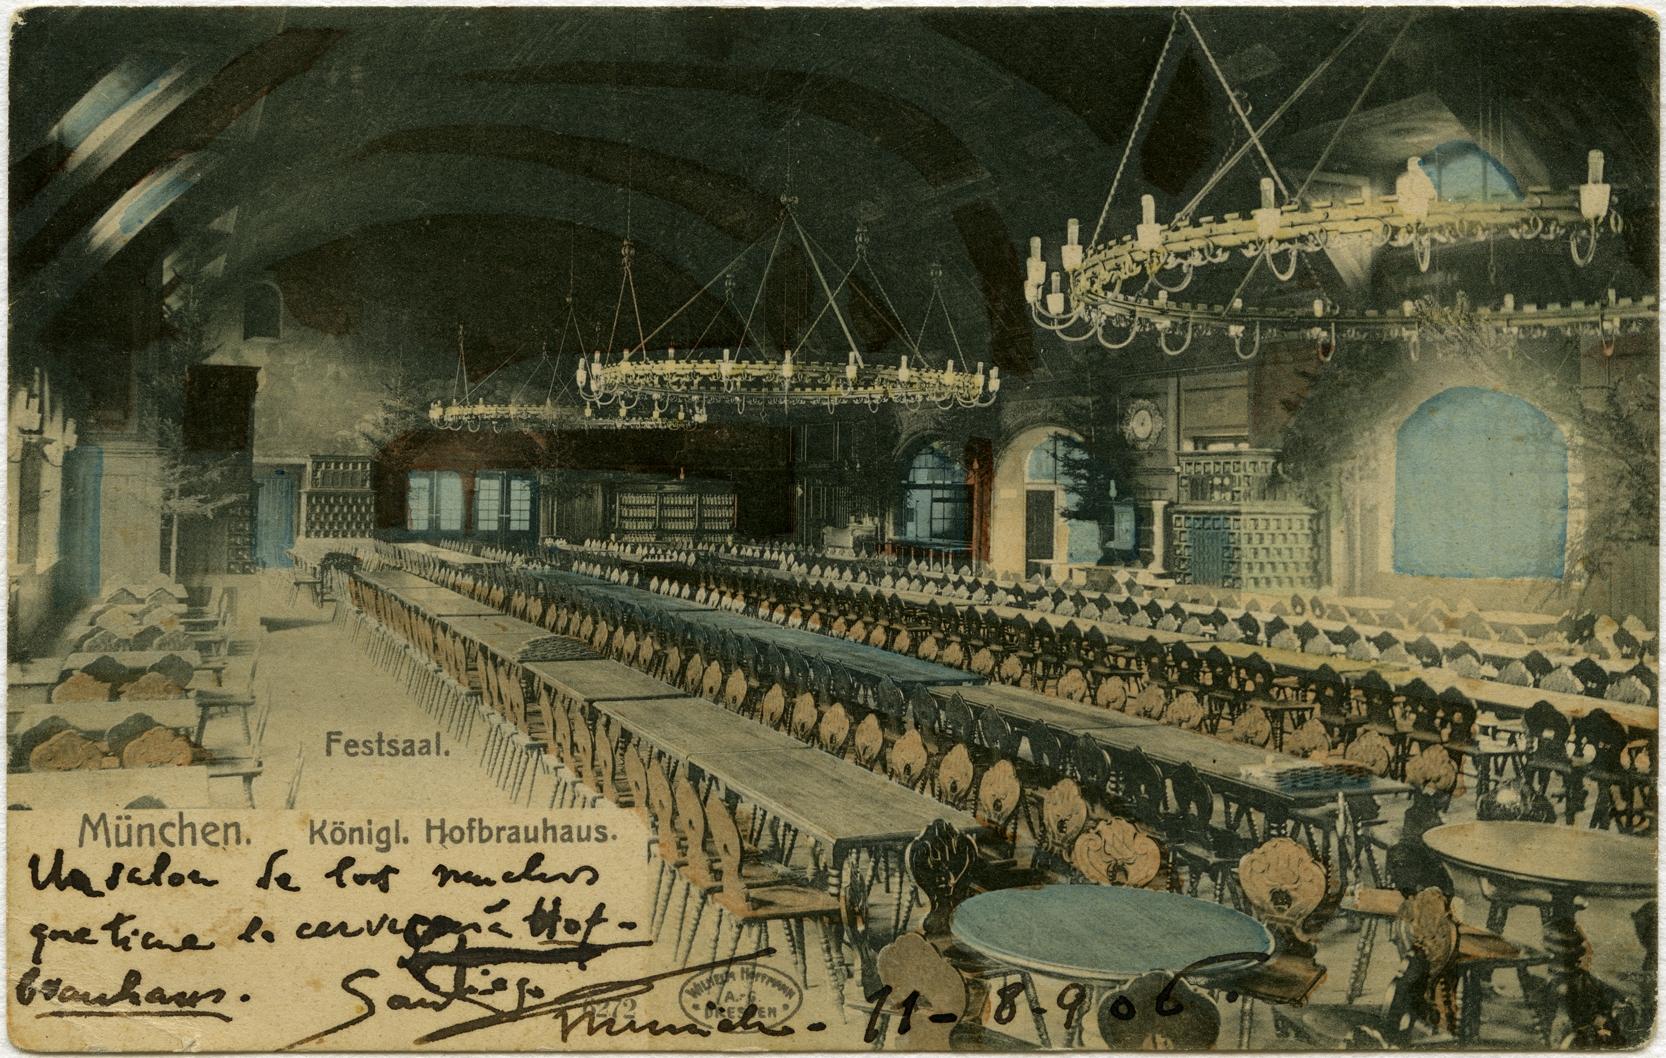 Festsaal.
München. Königl. Hofbrauhaus.
Un salon de los muchos
que tiene la cervecería Hof-
brauhaus.
Santiago
Munich - 11-8-906.
WILHELM HOFFMANN
A.-G.
DRESDEN